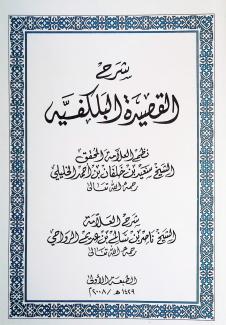 شرح
القصيدة البلكفية
نظم العلامة المحقق
الشيخ سعيد بن خلفان بن أحمد الخليلي
رحمه الله تعالى
شرح العلامة
الشيخ ناصر بن سالم بن عديم الرواحي
رحمه الله تعالى
الطبعة الأولى
١٤٢٩هـ / ٢٠٠٨م